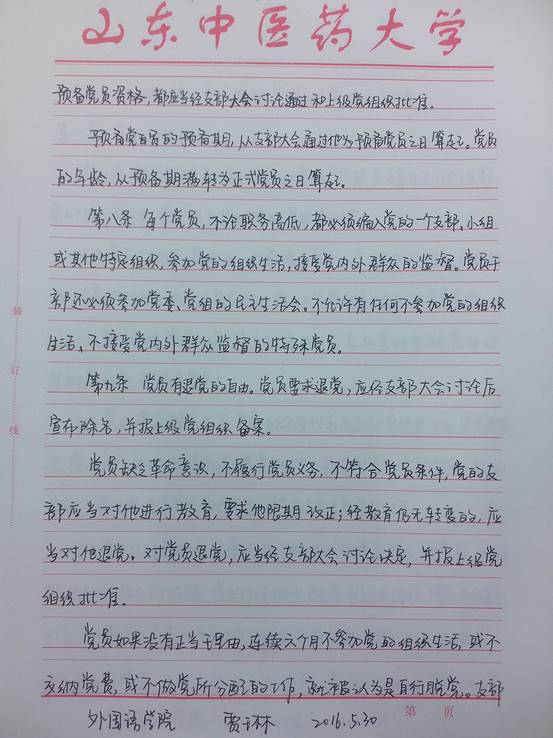 山东中医药大学
预备党员资格,都应当经支部大会讨论通过和上级党组织批准。
预备党员的预备期,从支部大会通过他为预备党员之日算起。党员
的年龄,从预备期满转为正式党员之日算起。
第八条 每个党员,不论职务高低,都必须编入党的一个支部、小组
或其他特定组织,参加党的组织生活,接受党内外群众的监督。党员干
部还必须参加党委、党组的民主生活会。不允许有任何不参加党的组织
生活、不接受党内外群众监督的特殊党员。
第九条 党员有退党的自由。党员要求退党,应经支部大会讨论后
宣布除名,并报上级党组织备案。
党员缺乏革命意识,不履行党员义务,不符合党员条件,党的支
部应当对他进行教育,要求他限期改正;经教育仍无转变的,应
当对他退党。对党员退党,应当经支部大会讨论决定,并报上级党
组织批准。
党员如果没有正当理由,连续六个月不参加党的组织生活,或不
交纳党费,或不做党所分配的工作,就被认为是自行脱党。支部
第 页
外国语学院 贾玉林 2016.5.30
装
订
线